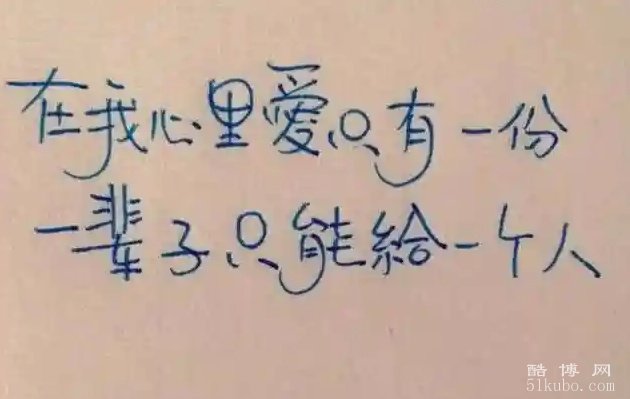 在我心里愛只有一份
一輩子只能給一个人
酷博网
51kubo.com